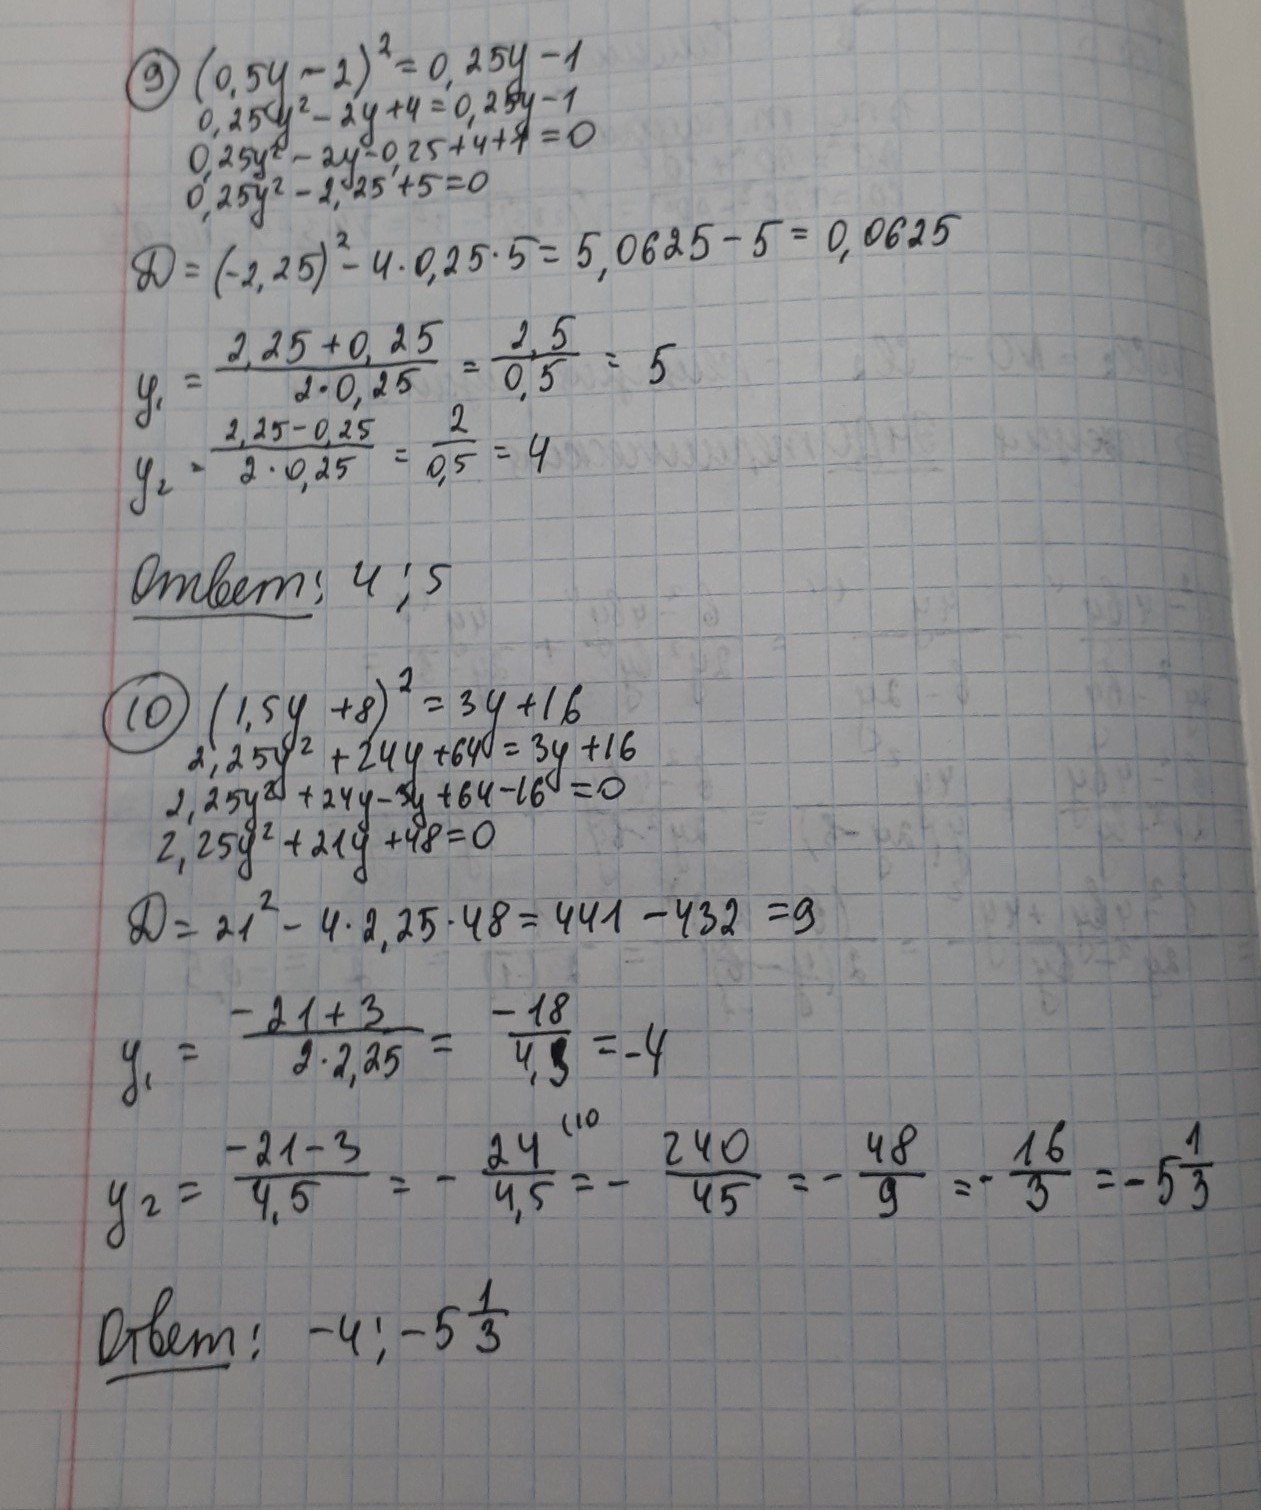 9 (0,5y - 2)² = 0,25y - 1
0,25y² - 2y + 4 = 0,25y - 1
0,25y² - 2y - 0,25 + 4 + 1 = 0
0,25y² - 2,25 + 5 = 0
D = (-2,25)² - 4 · 0,25 · 5 = 5,0625 - 5 = 0,0625
y₁ = (2,25 + 0,25)/(2 · 0,25) = 2,5/0,5 = 5
y₂ = (2,25 - 0,25)/(2 · 0,25) = 2/0,5 = 4
Ответ: 4; 5
10 (1,5y + 8)² = 3y + 16
2,25y² + 24y + 64 = 3y + 16
2,25y² + 24y - 3y + 64 - 16 = 0
2,25y² + 21y + 48 = 0
D = 21² - 4 · 2,25 · 48 = 441 - 432 = 9
y₁ = (-21 + 3)/(2 · 2,25) = -18/4,5 = -4
y₂ = (-21 - 3)/4,5 = - 24/4,5 (10 = - 240/45 = - 48/9 = - 16/3 = - 5 1/3
Ответ: -4; -5 1/3